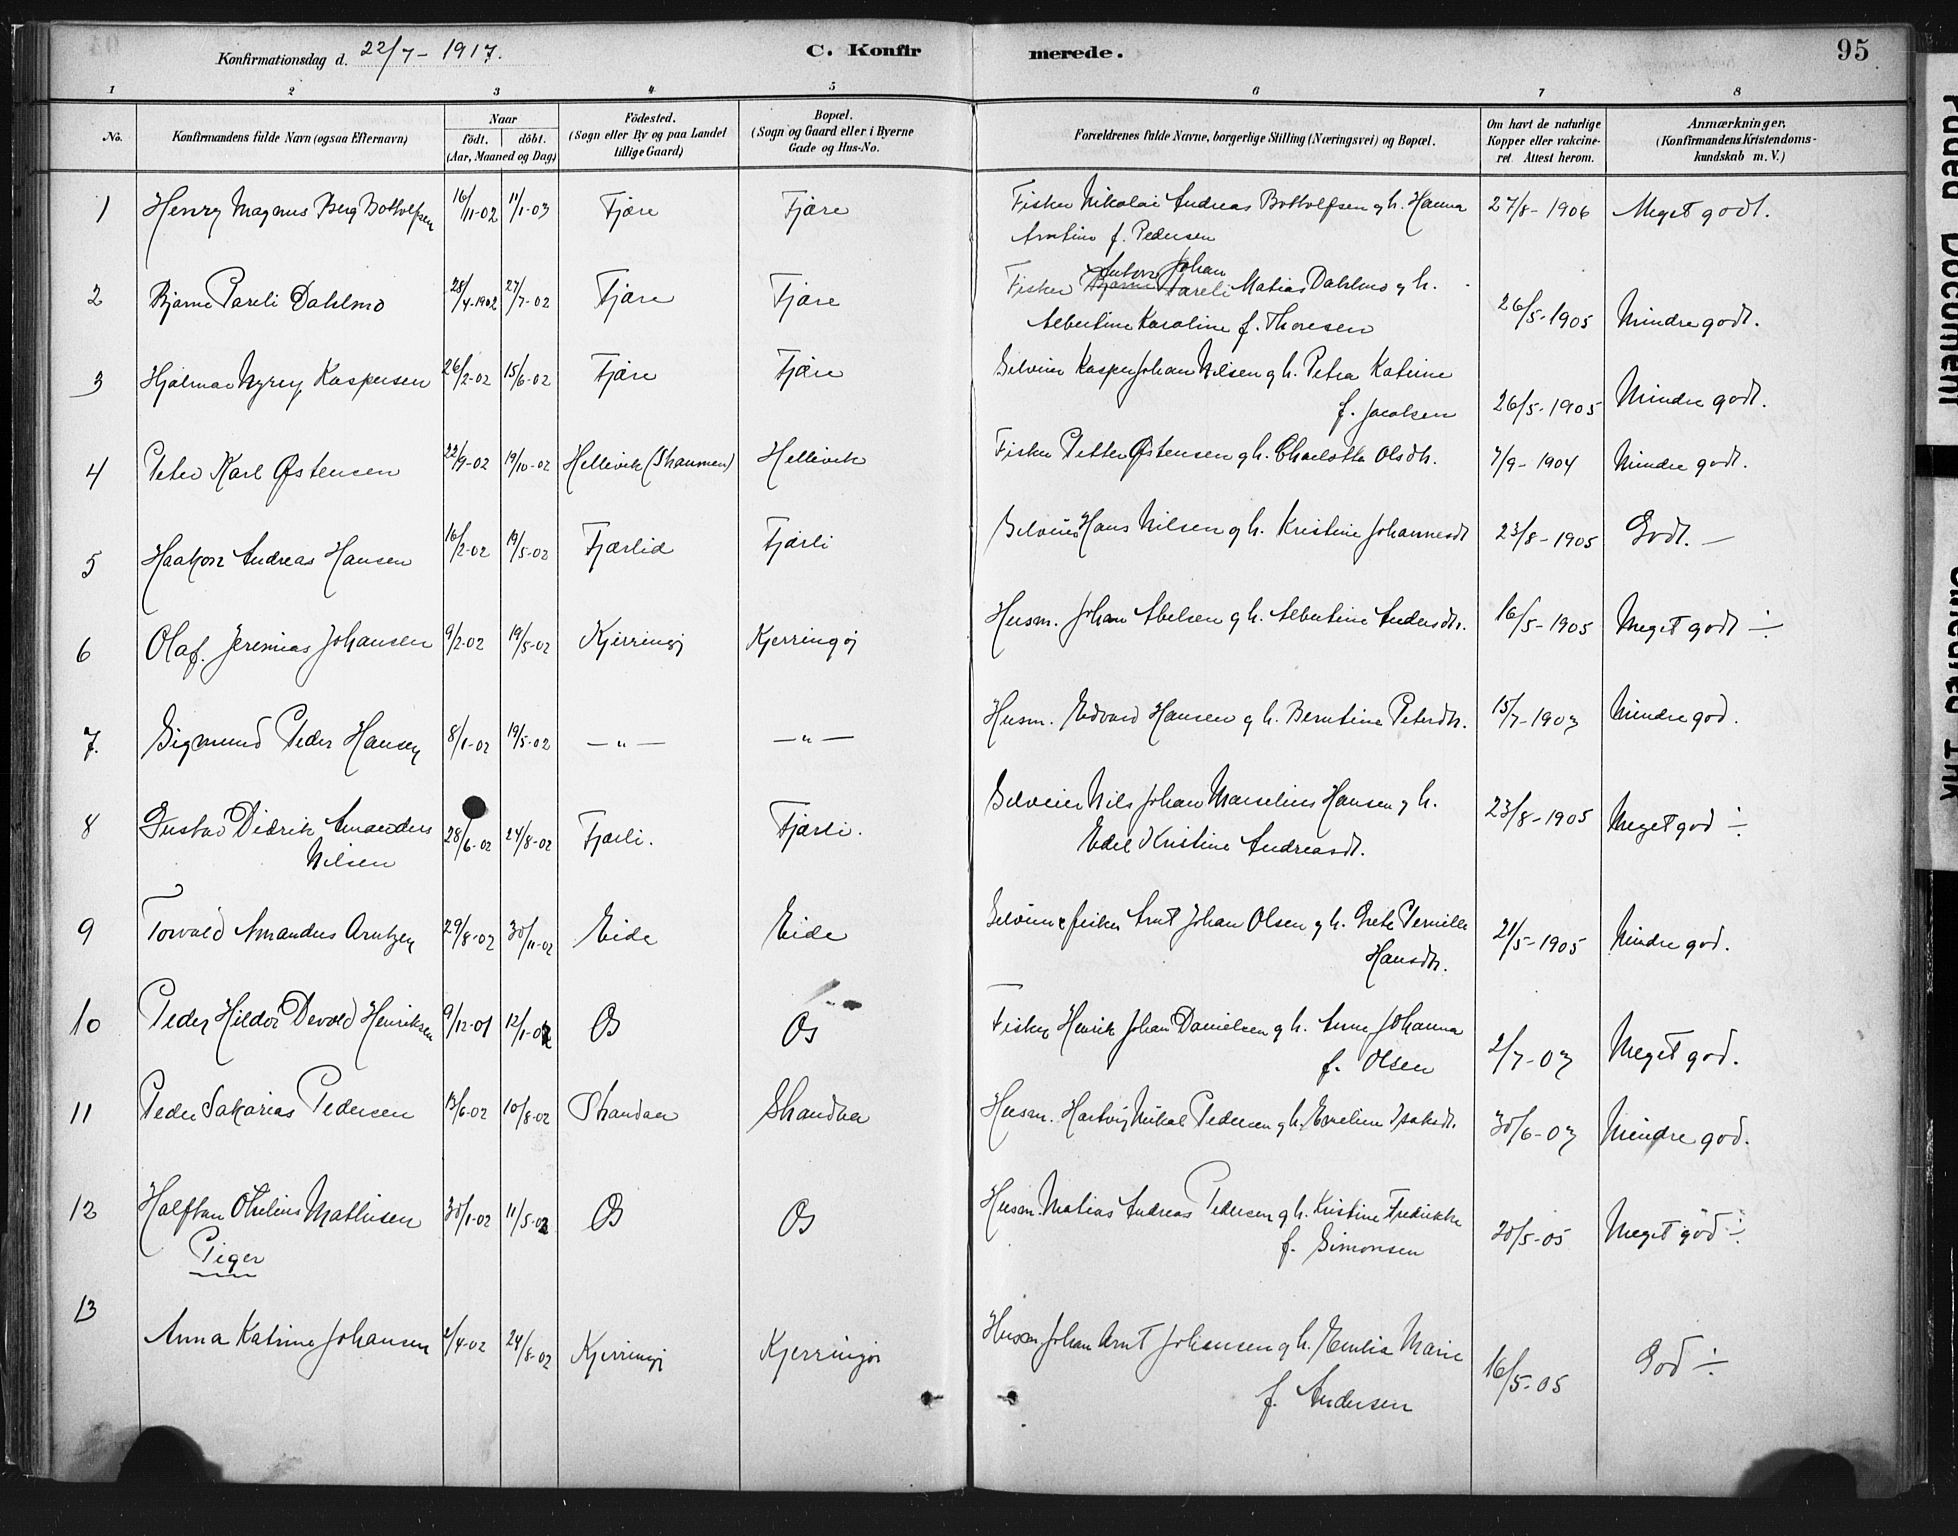 Konfirmationsdag d. 22/7 - 1917. C. Konfirmerede. 95
1 2 3 4 5 6 7 8
No. Konfirmandens fulde Navn (ogsaa Efternavn) Naar født. døbt. (Aar, Maaned og Dag) Fødested. (Sogn eller By og paa Landet tillige Gaard) Bopæl. (Sogn og Gaard eller i Byerne Gade og Hus-No. Forældrenes fulde Navne, borgerlige Stilling (Næringsvei) og Bopæl. Om havt de naturlige Kopper eller vakcineret. Attest herom. Anmærkninger, (Konfirmandens Kristendomskundskab m. V.)
1 Henry Magnus Berg Bottolfsen 16/11-02 11/1-03 Fjære Fjære Fisker Nikolai Andreas Bottolfsen og h. Hanna 27/8-1906 Meget godt.
Arntine f. Pedersen
2 Bjarne Pareli Dahlmo 28/4-1902 27/7-02 Fjære Fjære Fisker Anton Johan Bjarne Pareli Matias Dahlmo og h.
Albertine Karoline f. Thoresen 26/5-1905 Mindre godt.
3 Hjalmar Nyrey Kaspersen 26/2-02 15/6-02 Fjære Fjære Selveier Kasper Johan Nilsen og h. Petra Katrine
f. Jacobsen 26/5-1905 Mindre godt.
4 Peter Karl Østensen 22/9-02 19/10-02 Hellevik Hellevik Fisker Petter Østensen og h. Charlotta Olsdtr. 7/9-1904 Mindre godt.
5 Haakon Andreas Hansen 16/2-02 19/5-02 Fjærlid Fjærli Selveier Hans Nilsen og h. Kristine Johannesdt 23/8-1905 Godt. —
6 Olaf. Jeremias Johansen 9/2-02 19/5-02 Kjerringøj Kjerringøj Husm. Johan Abelsen og h. Albertine Andersdtr. 16/5-1905 Meget godt ÷
7. Sigmund Peder Hansen 8/1-02 19/5-02 — " — — " — Husm. Edvard Hansen og h. Berntine Petersdtr. 15/7-1903 Mindre god.
8 Gustav Didrik Amandus 28/6-02 24/8-02 Fjærli. Fjærli. Selveier Nils Johan Marselius Hansen og h. 23/8-1905 Meget god ÷
Nilsen Edel Kristine Andreasdt.
9 Torvald Amandus Arntzen 29/8-02 30/11-02 Eide Eide Selveier & fisker Arnt Johan Olsen og h. Grete Pernille 21/5-1905 Mindre god.
Hansdtr.
10 Peder Hildor Devold Henriksen 9/12-01 12/1-02 Os Os Fisker Henrik Johan Danielsen og h. Anne Johanna
f. Olsen 2/7-03 Meget god.
11 Peder Sakarias Pedersen 13/6-02 10/8-02 Strandaa Strandaa Husm. Hartvig Mikal Pedersen og h. Emeline Isaksdt. 30/6-03 Mindre god.
12 Halfdan Othelius Mathisen 30/1-02 11/5-02 Os Os Husm. Matias Andreas Pedersen og h. Kristine Fredrikke
f. Simonsen 20/5-05 Meget god ÷
Piger
13 Anna Katrine Johansen 2/4-02 24/8-02 Kjerringøj Kjerringøi Husm Johan Arnt Johansen og h. Emilia Marie
f. Andersen 16/5-05 God ÷